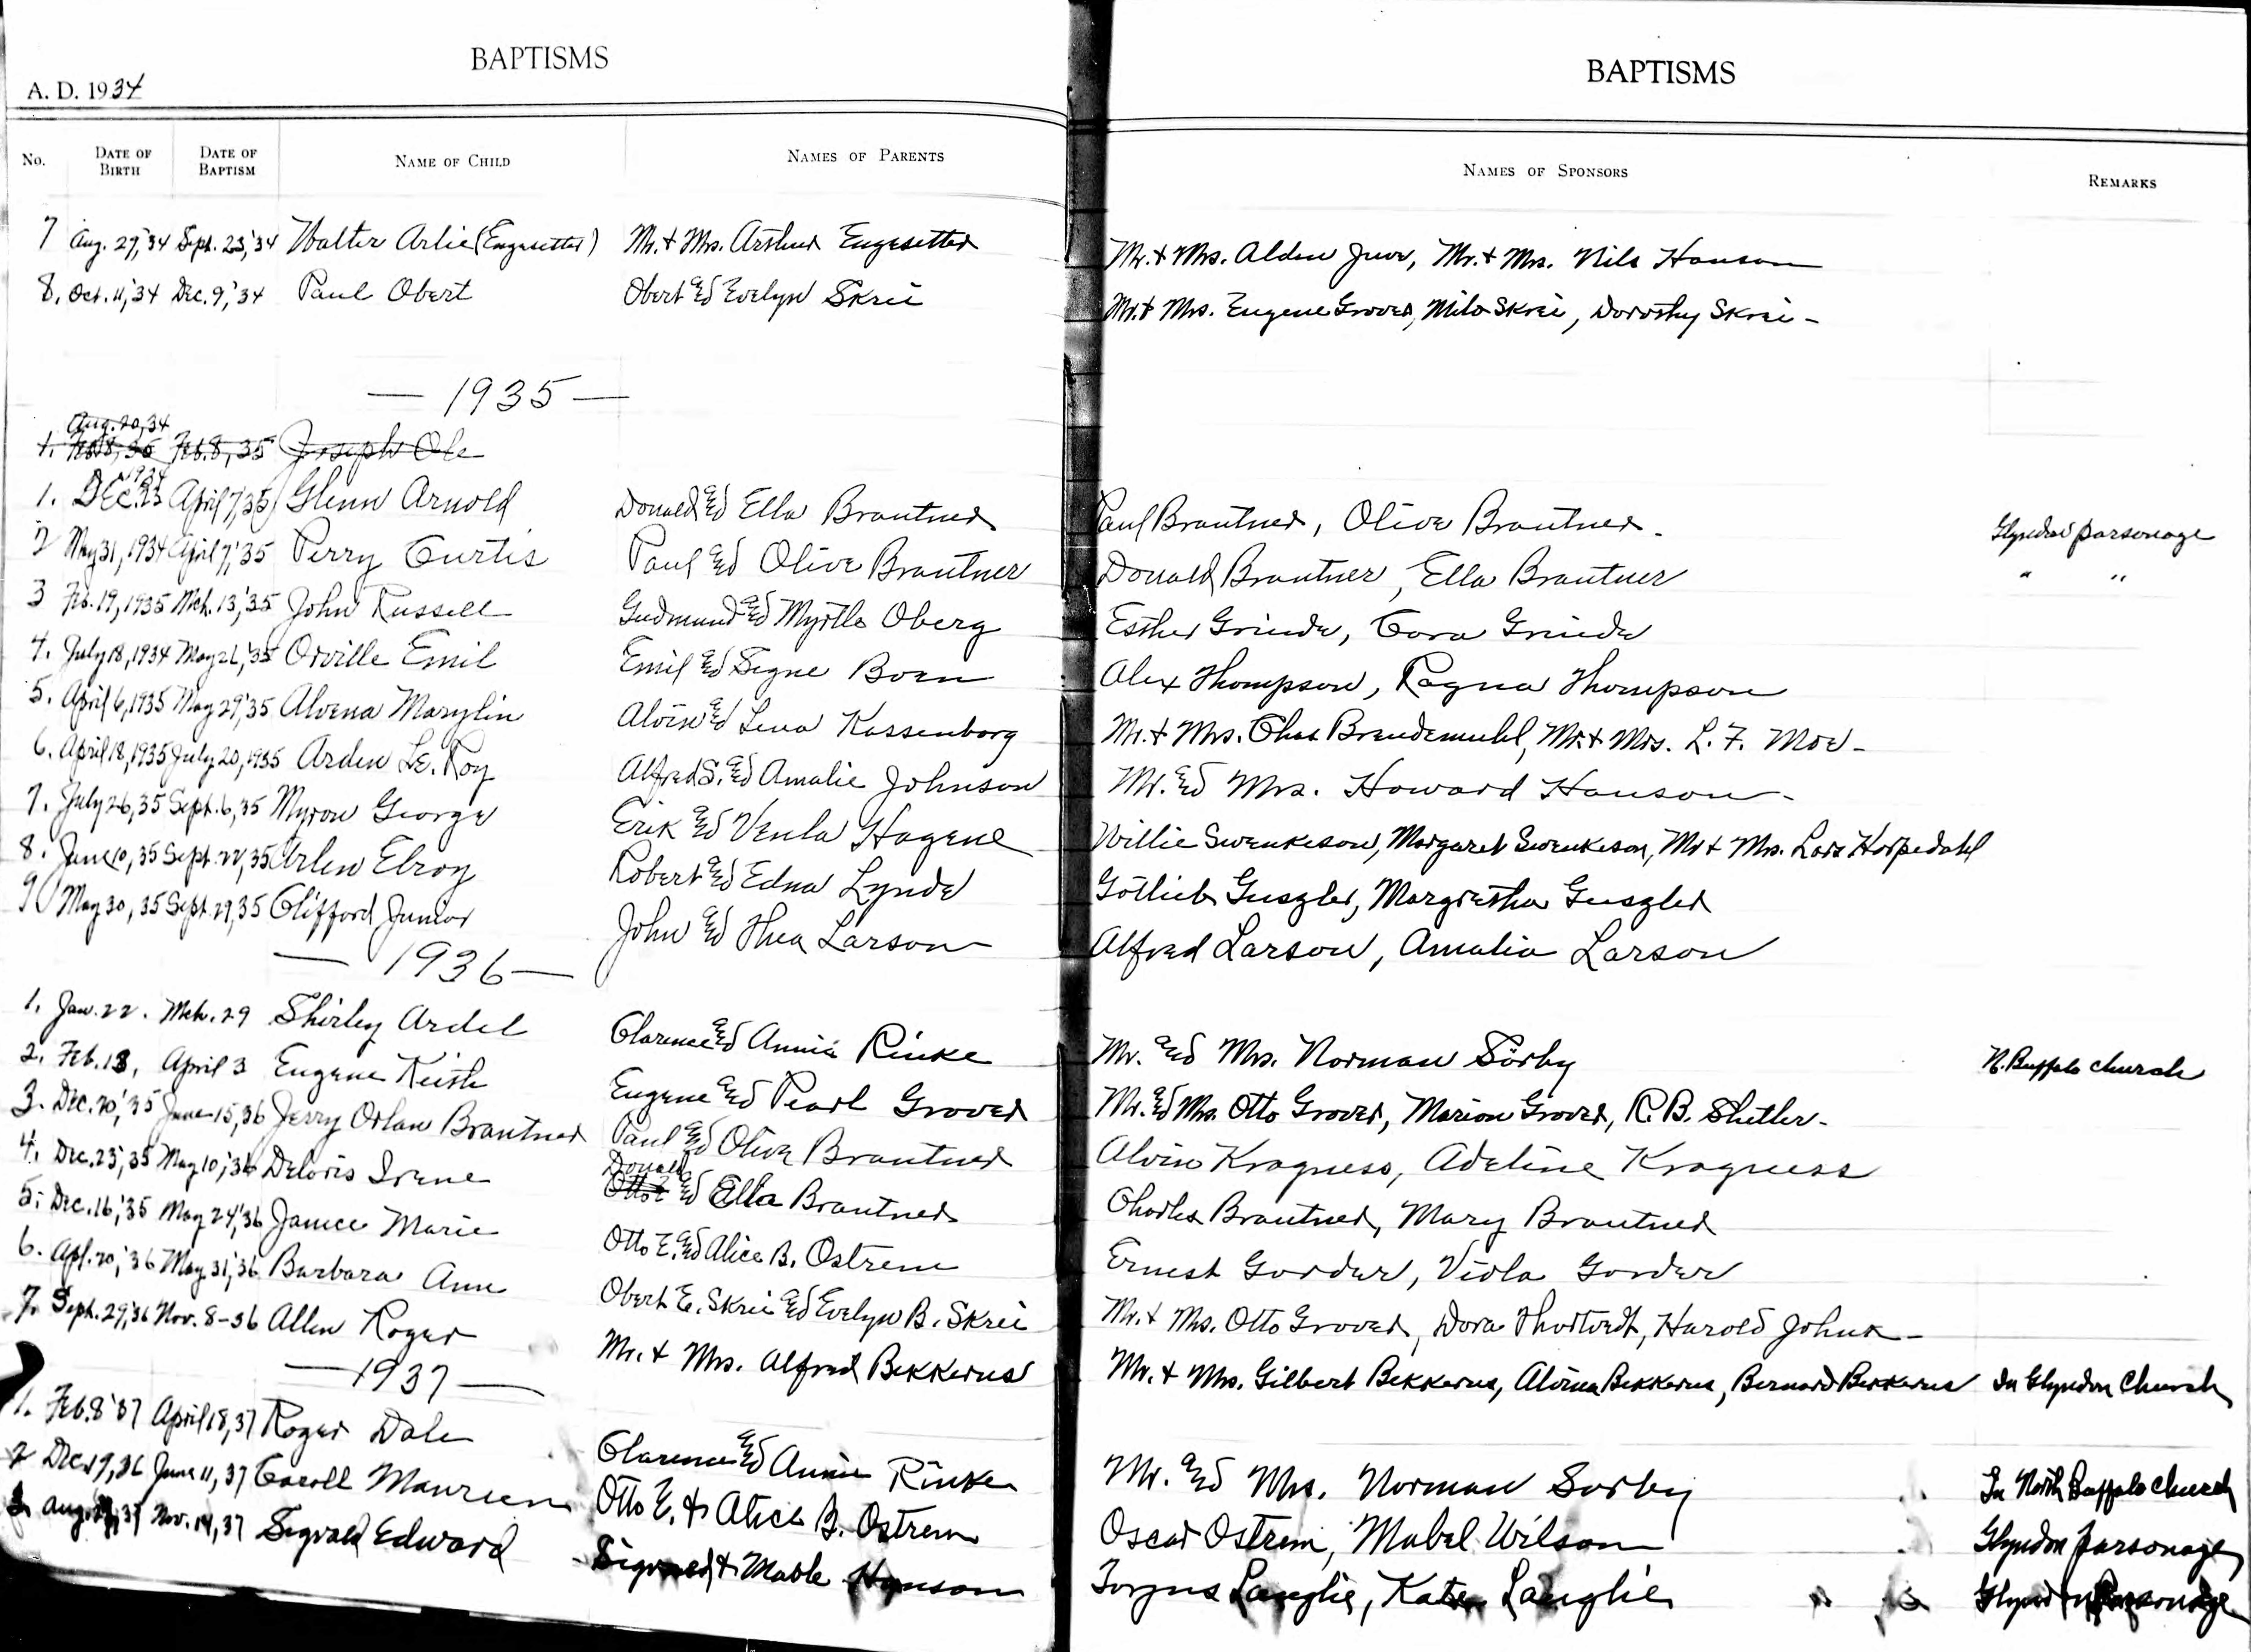 BAPTISMS
A. D. 1934
No. DATE OF BIRTH DATE OF BAPTISM NAME OF CHILD NAMES OF PARENTS
7 Aug. 27,'34 Sept. 23,'34 Walter Arlie (Engesetter) Mr. + Mrs. Arthur Engesetter
8. Oct. 11,'34 Dec. 9,'34 Paul Obert Obert and Evelyn Skrei
— 1935 —
Aug. 20, 34
1. Feb. 8, 35 Feb. 8, 35 Joseph Ole
1. Dec. 23 1934 April 7,'35 Glenn Arnold Donald and Ella Brantner
2 May 31, 1934 April 7,'35 Perry Curtis Paul and Olive Brantner
3 Feb. 19, 1935 Mch. 13,'35 John Russell Gudmund and Myrtle Oberg
4. July 18, 1934 May 26,'35 Orville Emil Emil and Signe Boen
5. April 6, 1935 May 29,'35 Alvena Marylin Alvin and Lena Kassenborg
6. April 18, 1935 July 20, 1935 Arden Le. Roy Alfred S. and Amalie Johnson
7. July 26, 35 Sept. 6, 35 Myron George Erik and Venla Hagene
8. June 10, 35 Sept. 22, 35 Arlen Elroy Robert and Edna Lynde
9 May 30, 35 Sept. 29, 35 Clifford Junior John and Thea Larson
— 1936 —
1. Jan. 22. Mch. 29 Shirley Ardel Clarence and Annie Rinke
2. Feb. 13, April 3 Eugene Keith Eugene and Pearl Grover
3. Dec. 20,'35 June 15, 36 Jerry Orlan Brantner Paul and Olive Brantner
4. Dec. 23,'35 May 10,'36 Deloris Irene Donald and Ella Brantner
5. Dec. 16,'35 May 24,'36 Janice Marie Otto E. and Alice B. Ostrem
6. Apl. 20,'36 May 31,'36 Barbara Ann Obert E. Skrei and Evelyn B. Skrei
7. Sept. 29,'36 Nov. 8-36 Allen Roger Mr. + Mrs. Alfred Bekkerus
— 1937 —
1. Feb. 8 '37 April 18, 37 Roger Dale Clarence and Annie Rinke
2 Dec. 19, 36 June 11, 37 Caroll Maureen Otto E. + Alice B. Ostrem
3 Aug. 37 Nov. 14, 37 Sigvald Edward Sigvald + Mable Hanson
BAPTISMS
NAMES OF SPONSORS REMARKS
Mr. + Mrs. Alden Juve, Mr. + Mrs. Nils Hanson
Mr. + Mrs. Eugene Grover, Milo Skrei, Dorothy Skrei -
Paul Brantner, Olive Brantner. Glyndon parsonage
Donald Brantner, Ella Brantner " "
Esther Grinde, Cora Grinde
Alex Thompson, Ragna Thompson
Mr. + Mrs. Chas Brendemuhl, Mr. + Mrs. L. F. Moe -
Mr. and Mrs. Howard Hanson -
Willie Swenkeson, Margaret Swenkeson, Mr + Mrs. Lars Horpedahl
Gotlieb Guszler, Margretha Guszler
Alfred Larson, Amalia Larson
Mr. and Mrs. Norman Sörby N. Buffalo church
Mr. and Mrs. Otto Grover, Marion Grover, R. B. Shetler -
Alvin Kragness, Adeline Kragness
Charles Brantner, Mary Brantner
Ernest Gorder, Viola Gorder
Mr. + Mrs. Otto Grover, Dora Thortvedt, Harold Johnk -
Mr. + Mrs. Gilbert Bekkerus, Alvina Bekkerus, Bernard Bekkerus In Glyndon Church
Mr. and Mrs. Norman Sorby In North Buffalo Church
Oscar Ostrem, Mabel Wilson Glyndon parsonage
Torgus Langlie, Kate Langlie Glyndon Parsonage